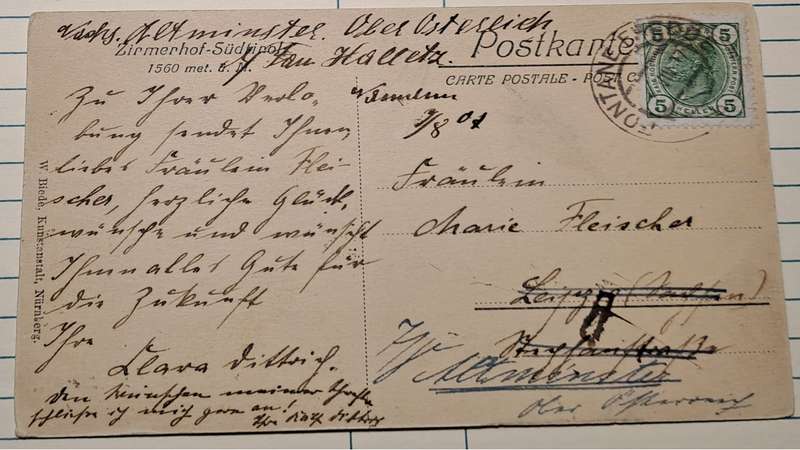 Nachs. Altmünster. Ober Österreich
Zirmerhof-Südtirol
1560 met. ü. M.
Postkarte
CARTE POSTALE - POST C
5 5
5 5
FONTANE
9/8 07
Zu Ihrer Verlo-
bung sendet Ihnen,
liebes Fräulein Flei-
scher, herzliche Glück-
wünsche und wünscht
Ihnen alles Gute für
die Zukunft
Ihre
Clara Dittrich.
Den Wünschen meiner
schließe ich mich gern an!
W. Biede, Kunstanstalt, Nürnberg.
Fräulein
Marie Fleischer
Leipzig (Sachsen)
Stephanstraße
Altmünster
Ober Österreich